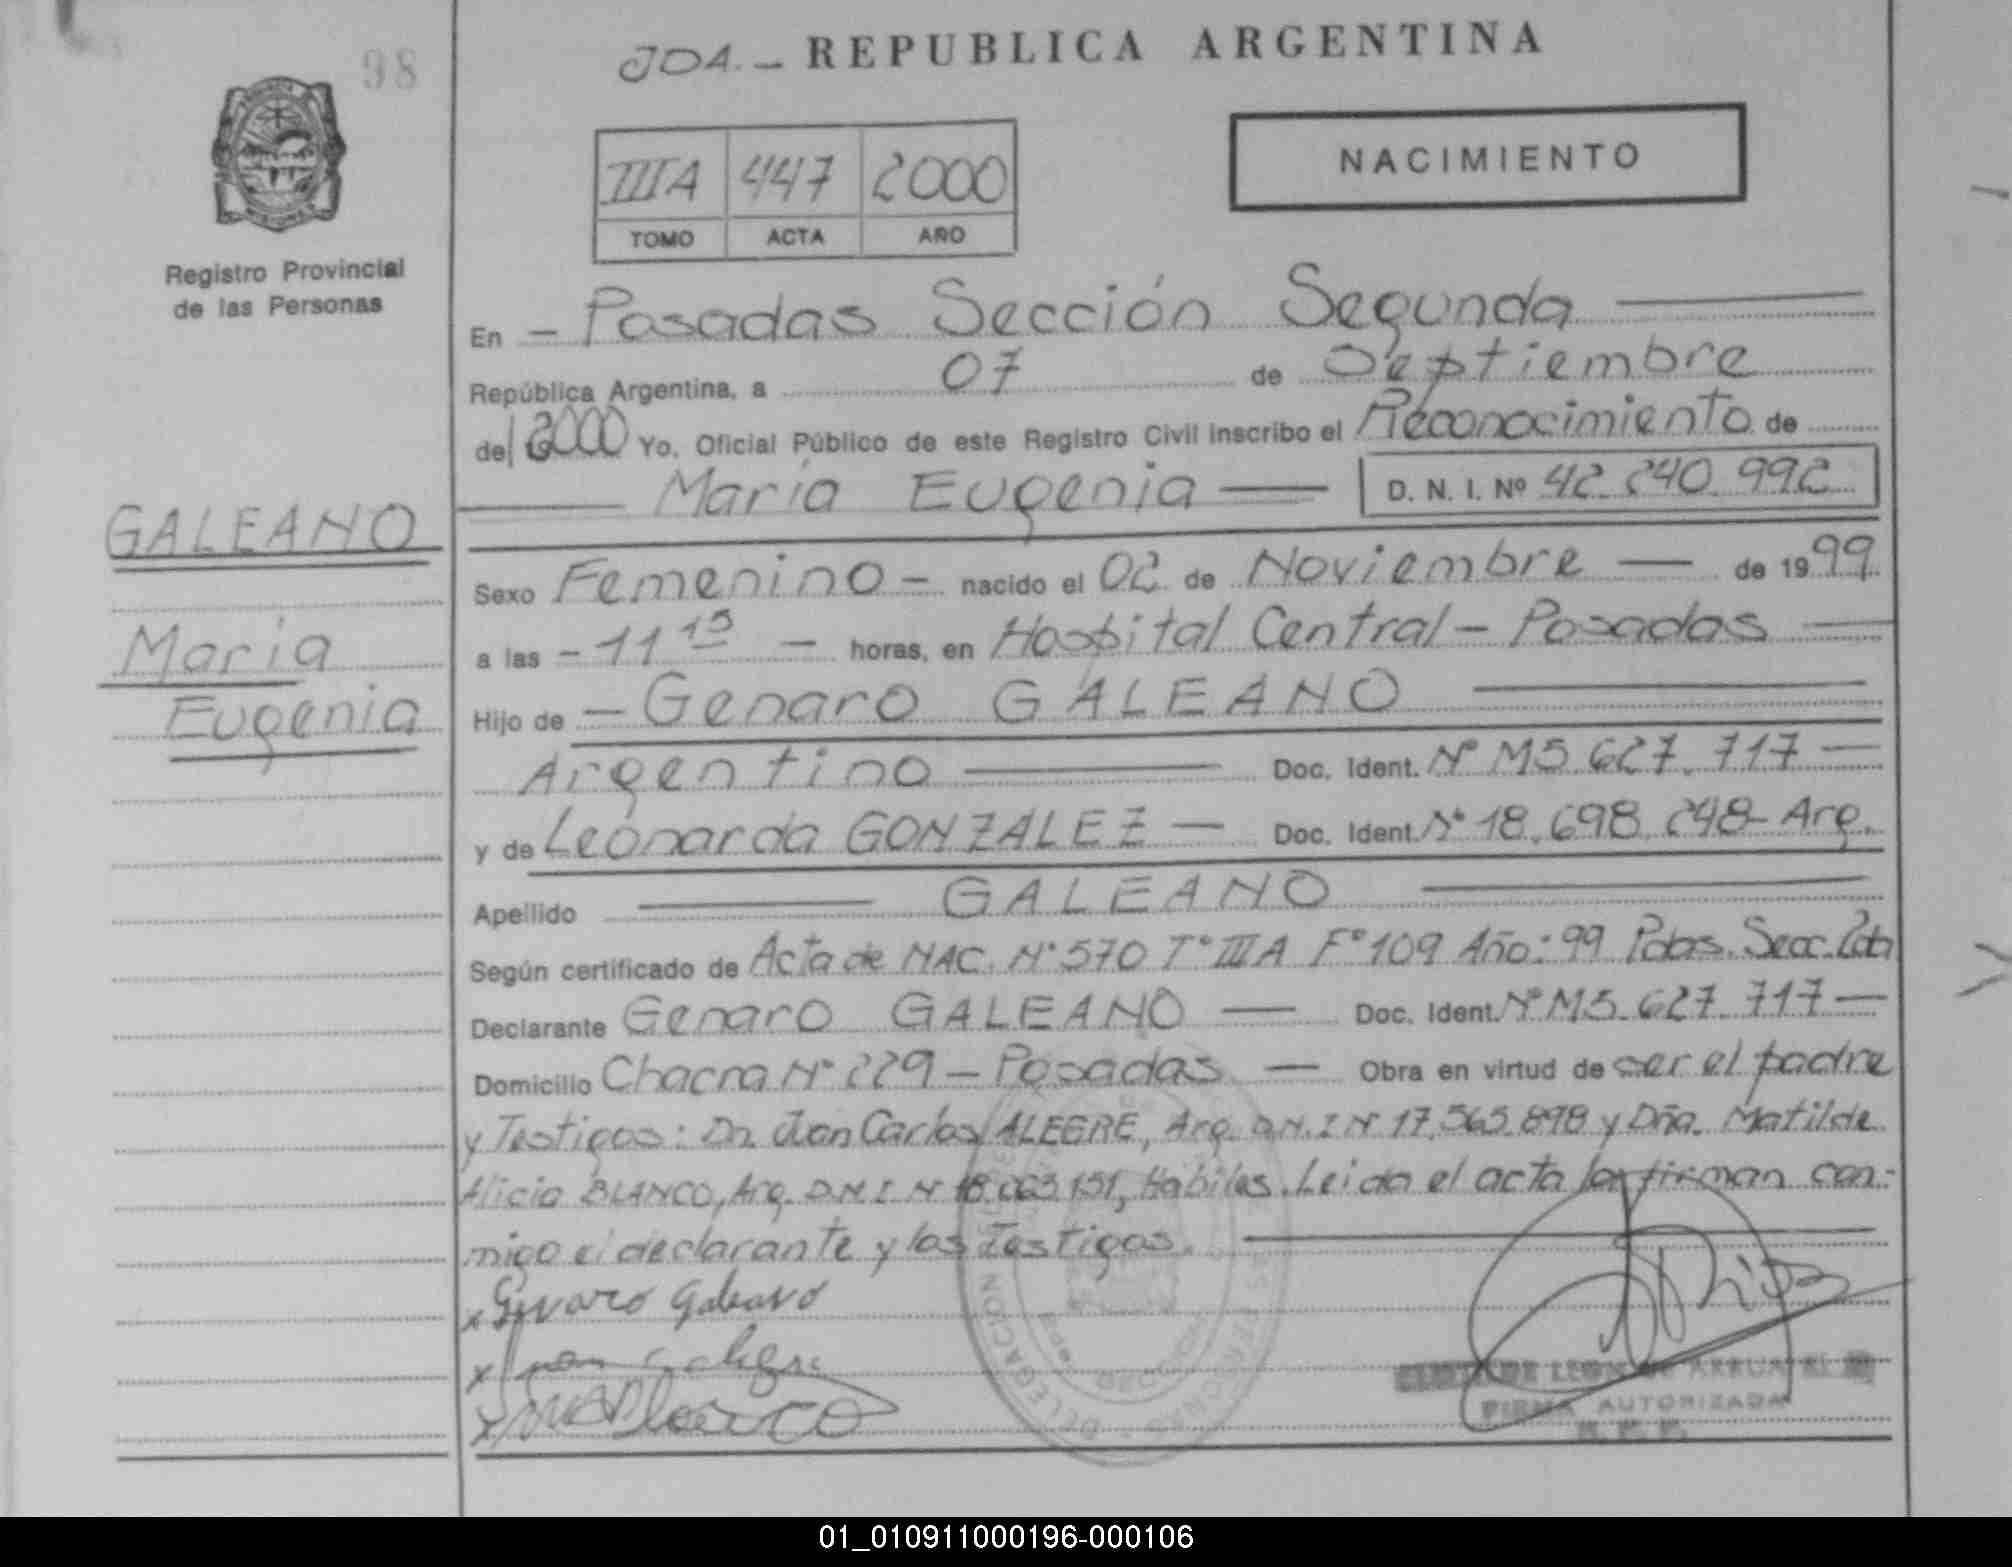 98
JDA. - REPUBLICA ARGENTINA
NACIMIENTO
IIIA 447 2000
TOMO ACTA AÑO
Registro Provincial
de las Personas
GALEANO
María
Eugenia
En - Posadas Sección Segunda
República Argentina, a 07 de Septiembre
de 2000 Yo, Oficial Público de este Registro Civil inscribo el Reconocimiento de
María Eugenia D. N. I. Nº 42.240.992
Sexo Femenino - nacido el 02 de Noviembre de 1999
a las - 11 15 - horas, en Hospital Central - Posadas
Hijo de - Genaro GALEANO
Argentino Doc. Ident. Nº M5.627.717
y de Leonarda GONZALEZ - Doc. Ident. Nº 18.698.248- Arg.
Apellido GALEANO
Según certificado de Acta de NAC. Nº 570 Tº IIIA Fº 109 Año: 99 Pdas. Secc. 2da
Declarante Genaro GALEANO - Doc. Ident. Nº M5.627.717
Domicilio Chacra Nº 229 - Posadas - Obra en virtud de ser el padre
y Testigos: Dn. Juan Carlos ALEGRE, Arg. D.N.I Nº 17.565.898 y Dña. Matilde
Alicia BLANCO, Arg. D.N.I. Nº 18.063.151, Hábiles. Leida el acta la firman con-
migo el declarante y los Testigos.
x Genaro Galeano
x
x
DELEGACION
FIRMA AUTORIZADA
01_010911000196-000106